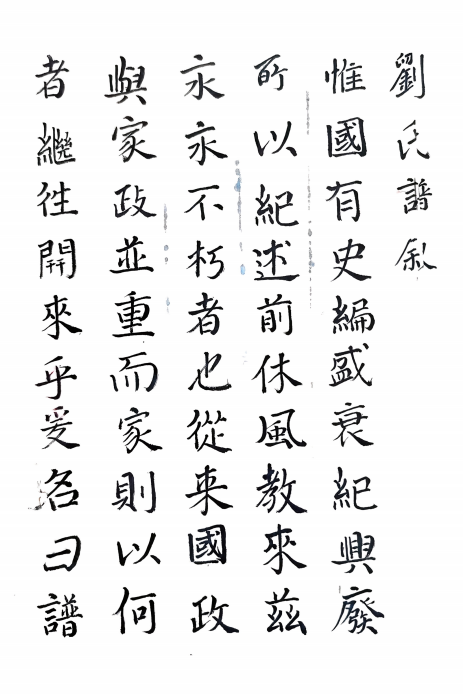 劉氏譜叙
惟國有史編盛衰紀興廢
所以紀述前休風教來茲
永永不朽者也從来國政
與家政並重而家則以何
者繼徃開來乎爰名曰譜